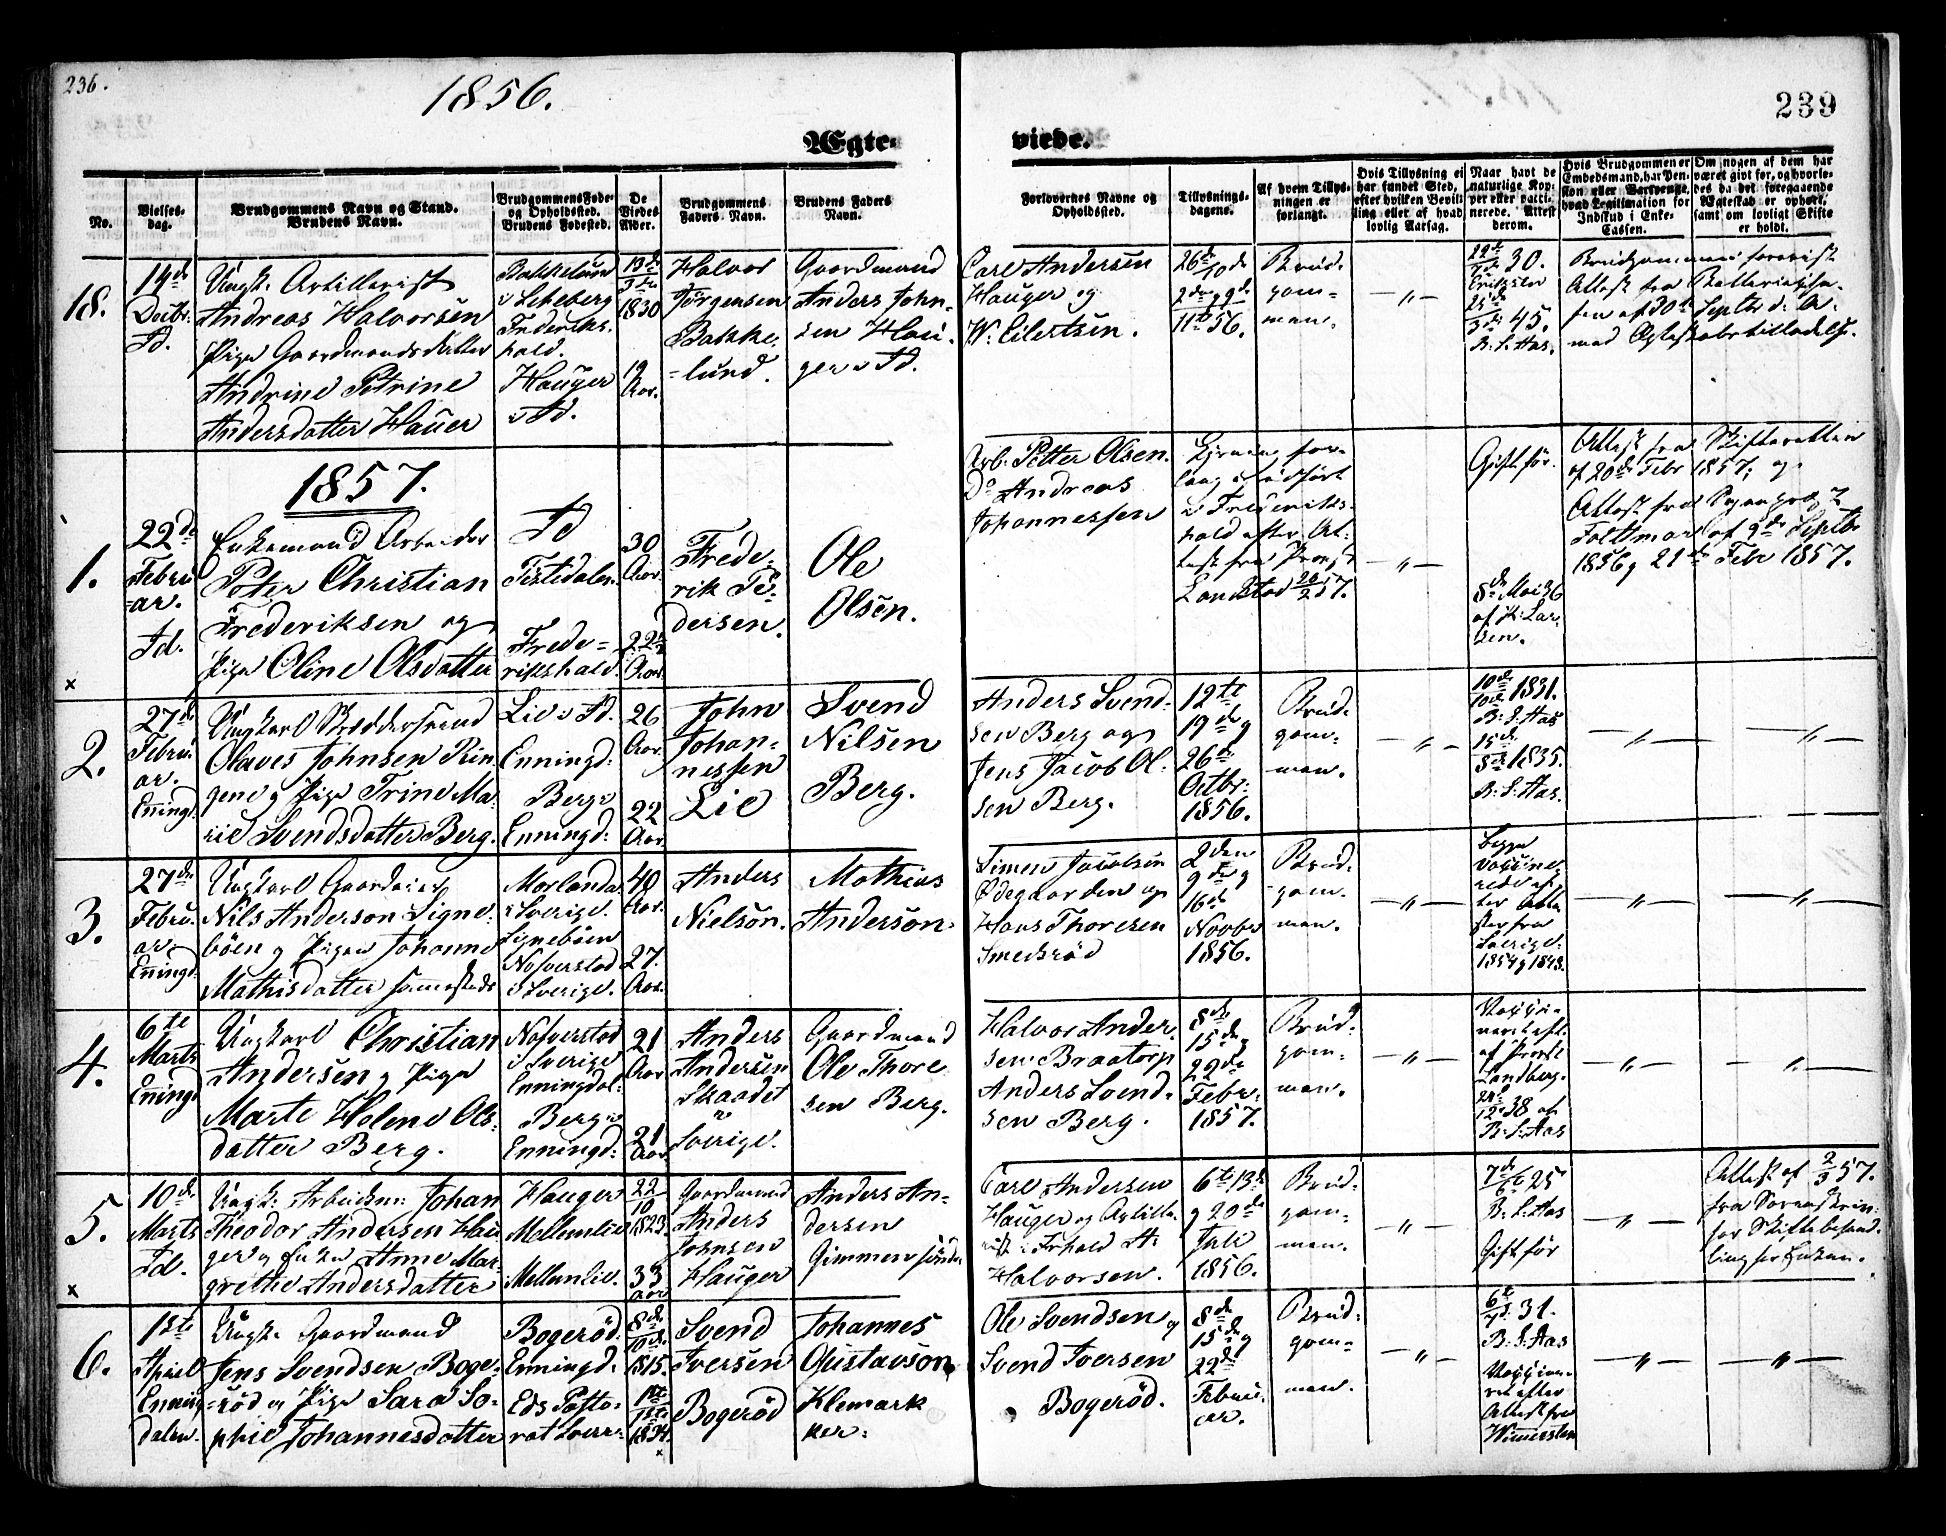 236.
1856.
239
Ægte-
viede.
No.
Vielses-
dag.
Brudgommens Navn og Stand.
Brudens Navn.
BrudgommensFøde-
og Opholdssted.
Brudens Fødested.
De
Viedes
Alder.
Brudgommens
Faders Navn.
Brudens Faders
Navn.
Forlovernes Navne og
Opholdssted.
Tillysnings-
dagene.
Af hvem Tillys-
ningen er
forlangt.
Hvis Tillysning ei
har fundet Sted,
efter hvilken Bevil-
ling eller af hvad
lovlig Aarsag.
Naar havt de
naturlige Kop-
per eller vacci-
nerede. Attest
derom.
Hvis Brudgommen er
Embedsmand, har Pen-
sion eller Vartpenge,
hvad Legitimation for
Indskud i Enke-
Cassen.
Om nogen af dem har
været gift før, og hvorle-
des da det foregaaende
Ægteskab er ophørt,
samt om lovligt Skifte
er holdt.
18.
14de
Decbr.
Id.
Ungk. Artillerist
Andreas Halvorsen
Pige Gaardmandsdatter
Andrine Petrine
Andersdatter Hauer
Bakkelund
i
Frederiks-
hald.
Hauger
i Id.
1830
19
Aar.
Halvor
Jørgensen
Bakke-
=lund.
Gaardmand
Anders John-
sen Hau-
ger i Id.
Carl Andersen
Hauger og
W. Eilertsen.
26de
56.
Brud-
gom-
man.
- " -
30.
45.
B. S. Aas.
Brudgommen foreviist
Attest fra
med Ægteskabstilladelse.
1857.
1.
22de
Febru-
=ar.
Id.
Enkemand Arbeider
Peter Christian
Frederiksen og
Pige Oline Olsdatter
Id
Tistedalen.
Frede=
rikshald.
30
Aar.
Aar.
Frede-
rik Pe-
dersen.
Ole
Olsen.
Arb. Petter Olsen.
Do Andreas
Johannessen
i Frederiks-
hald efter At-
test fra Provst
Landstad
57.
- " -
Gift før.
8de Mai 36
af
Lar-
sen.
Attest fra Skifteretten
af 20de Febr 1857, og
Attest fra Sogneprest
af 9de Septbr
1856 og 21de Febr 1857.
x
2.
27de
Febru-
ar.
Enningd.
Ungkarl
Olaves Johnsen Rin-
gene og Pige Trine Ma-
rie Svendsdatter Berg.
Lie i Id.
Enningd.
Berg i
Enningd:
26
Aar.
22
Aar.
John
Johan-
nessen
Lie
Svend
Nilsen
Berg.
Anders Svend-
sen Berg og
Jens Jacob Ol-
sen Berg.
12te
19de og
26de
Octbr:
1856.
Brud-
gom-
man.
- " -
1831.
B. S. Aas
1835.
B. S. Aas.
- " -
- " -
3.
27de
Febru-
ar
Enningd.
Ungkarl Gaardeier
Nils Anderson Signe-
böen og Pigen Johanne
Mathisdatter sammesteds
Morlanda
i Sverige.
Signebøen
Nafverstad
i Sverige.
40
Aar.
27.
Aar.
Anders
Nielson.
Mathias
Anderson.
Simen Jacobsen
Ødegaarden og
Hans Thoresen
Smedsrød
2den
9de og
16de
Novbr
1856.
Brud-
gom-
man.
- " -
begge
vaccine-
rede ef-
ter Atte-
ster fra
Sverige.
- " -
- " -
4.
6te
Marts
Enningd
Ungkarl Christian
Andersen og Pige
Marte Helene Ols-
datter Berg.
Nafverstad
i Sverige
Enningdal.
Berg i
Enningd:
21
Aar
21
Aar.
Anders
Andersen
Skaadet
i
Sverige.
Gaardmand
Ole Thore-
sen Berg.
Halvor Ander-
sen Braatorp
Anders Svend-
sen Berg.
8de
15de og
22de
Febr:
1857.
Brud-
gom-
man.
- " -
Vaccine-
af Provst
Landberg.
38 af
B. S. Aas
- " -
- " -
5.
10de
Marts
Id.
Ungk: Arbeidsm: Johan
Theodor Andersen Hau-
ger og Enke Anne Mar-
grethe Andersdatter
Hauger
Mellemlie
Mellemlie.
22
10
1823.
33
Aar
Gaardmand
Anders
Johnsen
Hauger
Anders An-
dersen
Gimmen søndre
Carl Andersen
Hauger og Artille-
rist i Frhald A:
Halvorsen.
6te 13de
og 20de
Juli
1856.
Brud-
gom-
man.
- " -
7de
25
B. S. Aas
Gift før
- " -
Attest af 2/3 57.
fra Sorenskriv-
for Skiftebehand-
ling for Enken.
x
6.
1ste
April
Enning-
dalen.
Ungk. Gaardmand
Jens Svendsen Boge-
=rød og Pige Sara So-
phie Johannesdatter
Bogerød.
Enningd.
Eds Pasto-
rat Sverr:
8de
10de
1815.
1ste
1834.
x
Svend
Iversen
Bogerød
Johannes
Gustavson
Klemark
ker.
Ole Svendsen og
Svend Iversen
Bogerød.
8de
15de og
22de
Februa-
ar.
Brud-
gom-
man.
- " -
6te
31.
B. S. Aas
Vaccine-
ret efter
Attest fra
- " -
- " -